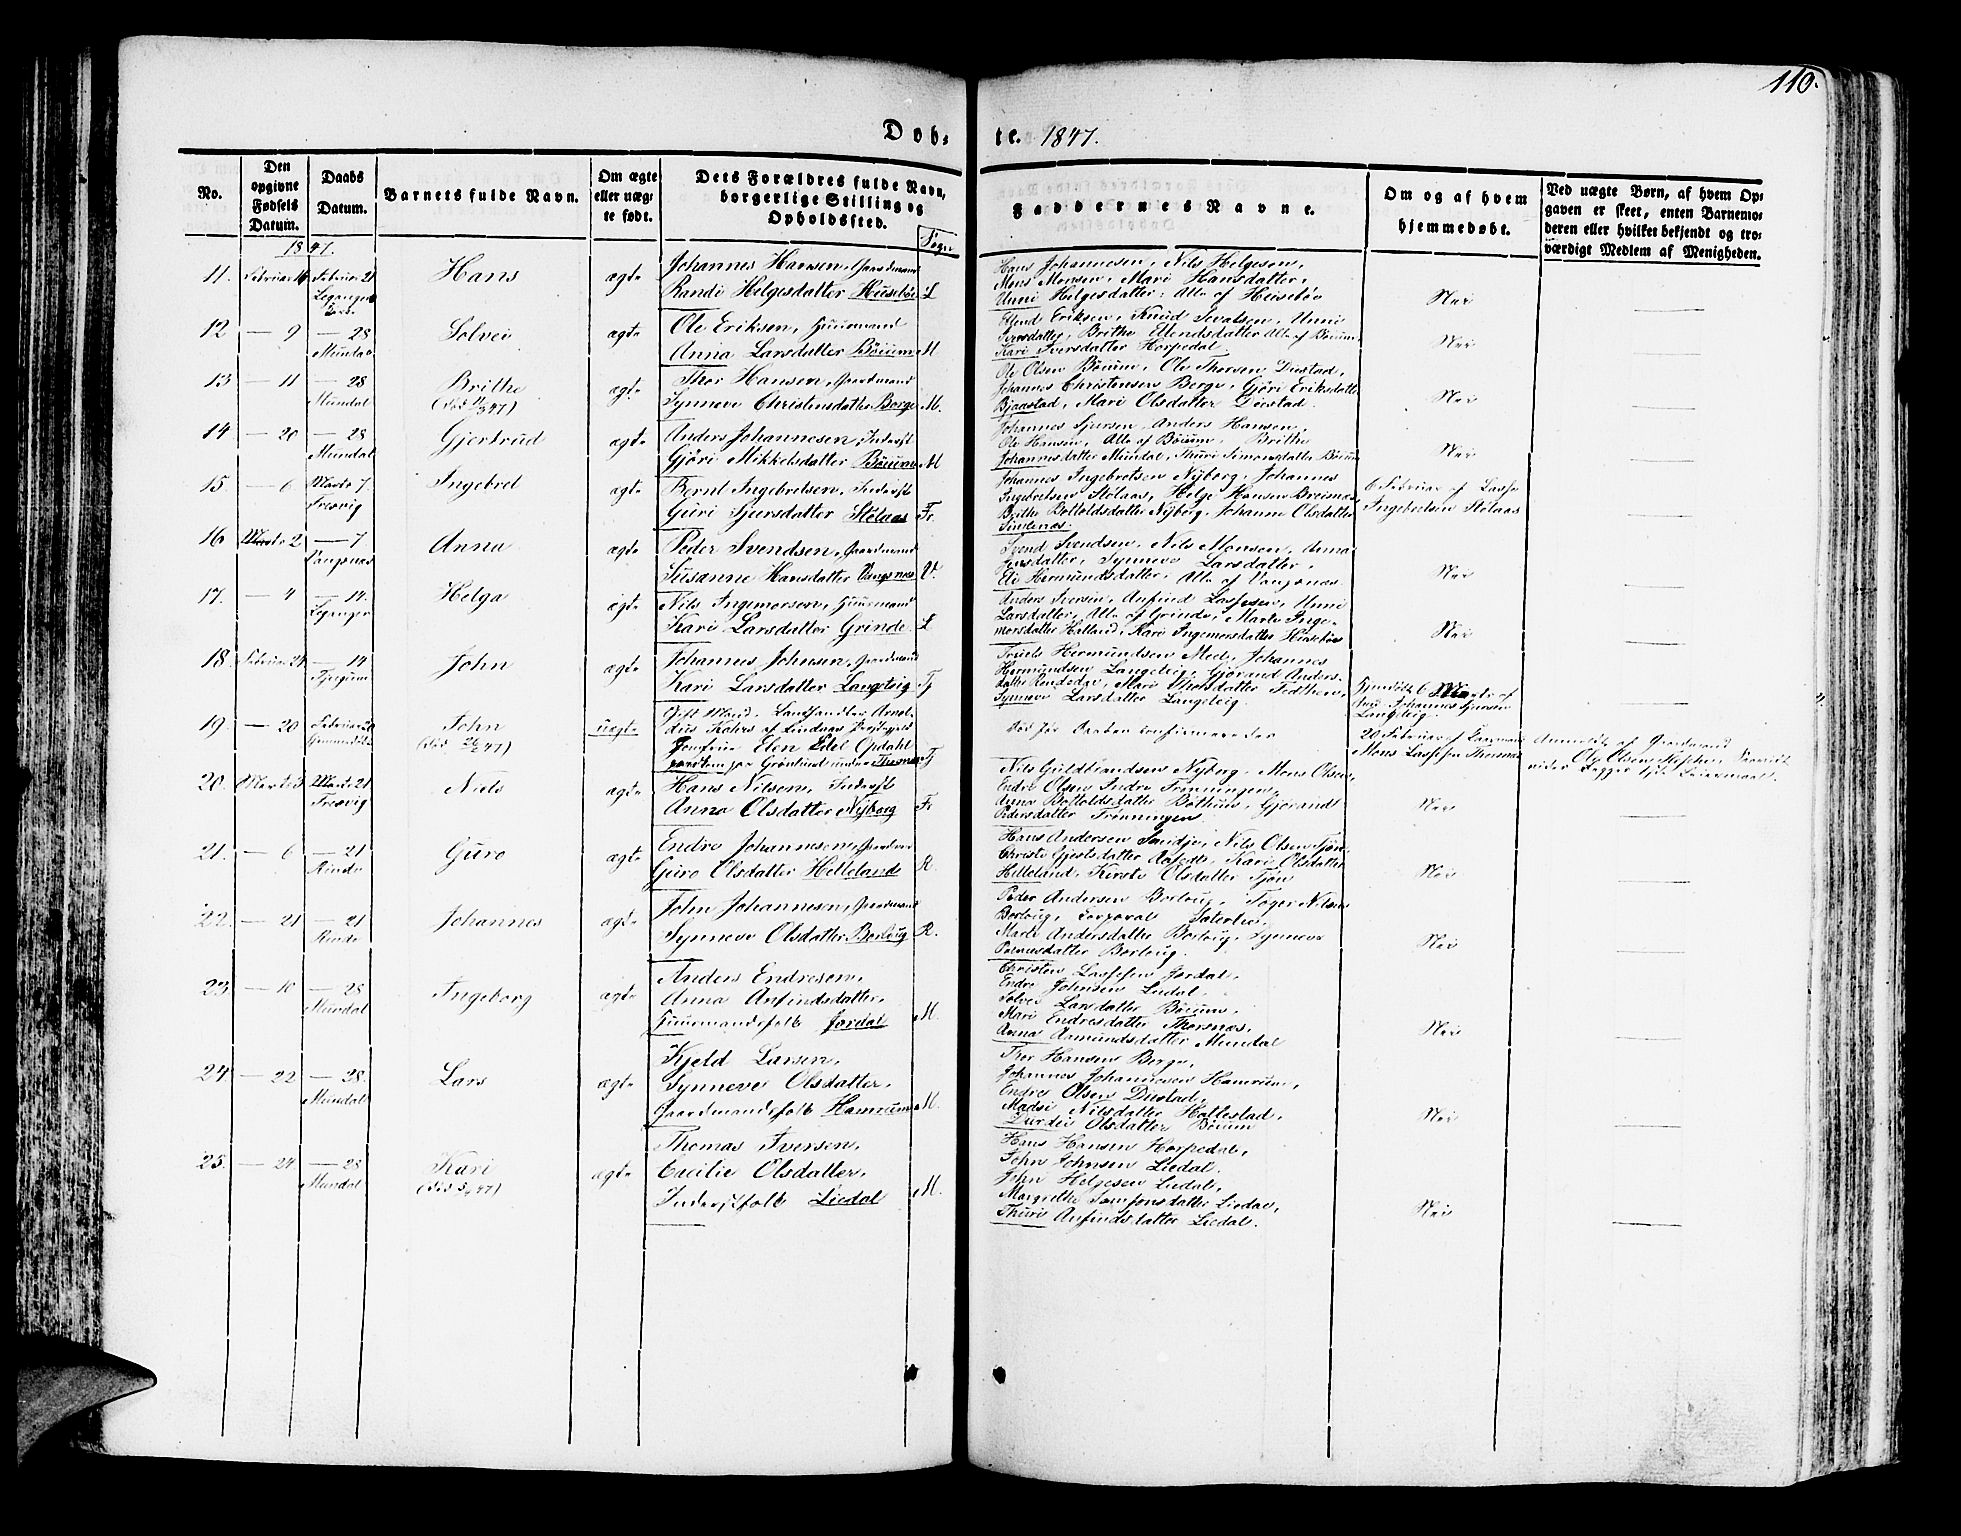 110.
Døb-
te. 1847.
No.
Den
opgivne
Fødsels
Datum.
Daabs
Datum.
Barnets fulde Navn.
Om ægte
eller uæg-
te født.
Dets Forældres fulde Navn,
borgerlige Stilling og
Opholdssted.
Sogn
Faddernes Navne.
Om og af hvem
hjemmedøbt.
Ved uægte Børn, af hvem Op-
gaven er skeet, enten Barnemo-
deren eller hvilket bekjendt og tro-
værdigt Medlem af Menigheden.
1847.
11. Februar 16 Februar 21 Hans ægte Johannes Hansen, Gaardmand
Leganger
Randi Helgesdatter Husebøe L
Hans Johannesen, Nils Helgesen,
Mons Monsen, Mari Hansdatter,
Unni Helgesdatter, Alle af Husebøe
Nei
12 — 9 — 28 Solvei ægte Ole Eriksen, Huusmand
Mundal
Anna Larsdatter Bøium M.
Erik Eriksen, Knud Sevatsen, Unni
Iversdatter, Brithe Ellendsdatter Alle af Bøium
Kari Iversdatter Horpedal
Nei
13 — 11 — 28 Brithe ægte Thor Hansen, Gaardmand
Mundal
Synneve Christensdatter Berge M.
Ole Olsen Bøium, Ole Thorsen Distad,
Johannes Christensen Berge, Gjøri Eriksdatter
Bjaastad, Mari Olsdatter Distad
Nei
14 — 20 — 28 Gjertrud ægte Anders Johannesen, Inderst
Mundal
Gjøri Mikkelsdatter Bøium M
Johannes Sjursen, Anders Hansen,
Ole Hansen, Alle af Bøium, Brithe
Johannesdatter Mundal, Thuri Simonsdatter Bøium
Nei
15. — 6 Marts 7. Ingebret ægte Bernt Ingebretsen, Inderst
Fresvig
Guri Sjursdatter Stølaas Fr.
Johannes Ingebretsen Nyborg, Johannes
Ingebretsen Stølaas, Helge Hansen Breinæs
Brithe Bottolfsdatter Nyborg, Johanne Olsdatter
Simlenæs.
6 Februar af Lasse
Ingebretsen Stølaas
16 Marts 2 — 7 Anna ægte Peder Svendsen, Gaardmand
Vangsnæs
Susanne Hansdatter Vangsnes V.
Svend Svendsen, Nils Monsen, Anna
Jensdatter, Synneve Larsdatter,
Eli Hermundsdatter, Alle af Vangsnæs.
Nei
17. — 4 — 14. Helga ægte Nils Ingemorsen, Huusmand
Leganger
Kari Larsdatter Grinde L
Anders Iversen, Anfind Lassesen, Unni
Larsdatter, Alle af Grinde, Marte Inge-
morsdatter Halland, Kari Ingemorsdatter Husebøe
Nei
18 Februar 24 — 14 John ægte Johannes Johnsen, Gaardmand
Tjugum
Kari Larsdatter Langeteig Tj
Truels Hermundsen Mel, Johannes
Hermundsen Langeteig, Gjørand Anders-
datter, Mari Thorsdatter
Synneve Larsdatter Langeteig.
Hjemdøbt 6 Marts af
Johannes Sjursen
Langeteig.
19. — 20 Februar 20 John uægte Gift Mand, Landhandler
af Lindaas Præstegjeld
Jomfrue Elen Edel Opdahl
Tj
Død før Daaben confirmeredes
20 Februar af Gaardmand
Mons Lassesen
Anmeldt af Gaardmand
Ole Olsen
20. Marts 3 Marts 21 Niels ægte Hans Nilsen, Inderst
Fresvig
Anna Olsdatter Nyborg Fr
Nils Guldbrandsen Nyborg, Mons Olsen,
Endre Olsen Indre Frønningen,
Anna Bottolfsdatter Bøthun, Gjørand
Pedersdatter Frønningen.
Nei
21. — 6 — 21 Guro ægte Endre Johannesen, Gaardmand
Rinde
Guro Olsdatter Helleland R.
Hans Andersen, Nils Olsen Tjøn
Christi, Kari Olsdatter
Helleland, Kirsti Olsdatter Tjøn
Nei
22. — 21 — 21 Johannes ægte John Johannesen, Gaardmand
Rinde
Synneve Olsdatter Borlaug R.
Peder Andersen Borlaug, Torger Nilsen
Borlaug, Corporal
Marte Andersdatter Borlaug, Synneve
Borlaug.
Nei
23 — 10 — 28 Ingeborg ægte Anders Endresen,
Mundal
Anna Anfindsdatter,
Huusmandsfolk Jordal M.
Christen Lassesen Jordal,
Endre Johnsen Liedal.
Solvei Larsdatter Bøium,
Mari Endresdatter Thorsnæs,
Anna Aamundsdatter Mundal
Nei
24. — 22 — 28. Lars ægte Kjeld Larsen,
Mundal
Synneve Olsdatter,
Gaardmandsfolk Hamrum M.
Thor Hansen Berge,
Johannes Johannesen Hamrum,
Endre Olsen Distad,
Madsi Nilsdatter Hallestad,
Durdei Olsdatter Bøium
Nei
25. — 24 — 28 Kari ægte Thomas Iversen,
Mundal
Cecilie Olsdatter,
Inderstfolk Liedal M.
Hans Hansen Horpedal,
John Johnsen Liedal.
John Helgesen Liedal,
Margrethe Samsonsdatter Liedal,
Thuri Anfindsdatter Liedal.
Nei